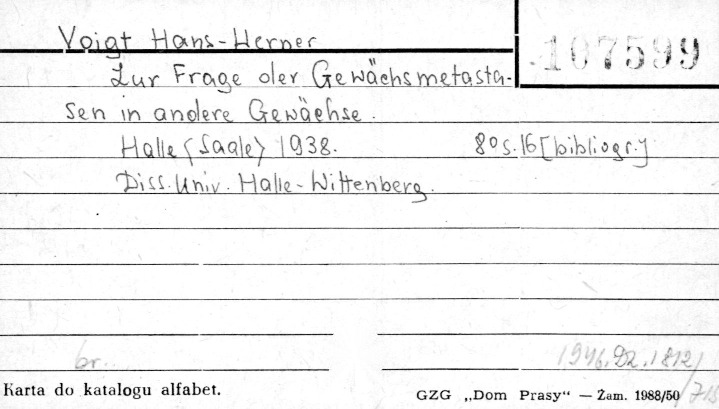 Voigt Hans-Werner
107599
Zur Frage der Gewächsmetasta-
sen in andere Gewächse.
Halle <Saale> 1938. 8° s. 16 [bibliogr.]
Diss. Univ. Halle-Wittenberg.
br.
1946.D2.1812/
Karta do katalogu alfabet.
GZG „Dom Prasy“ — Żam. 1988/50